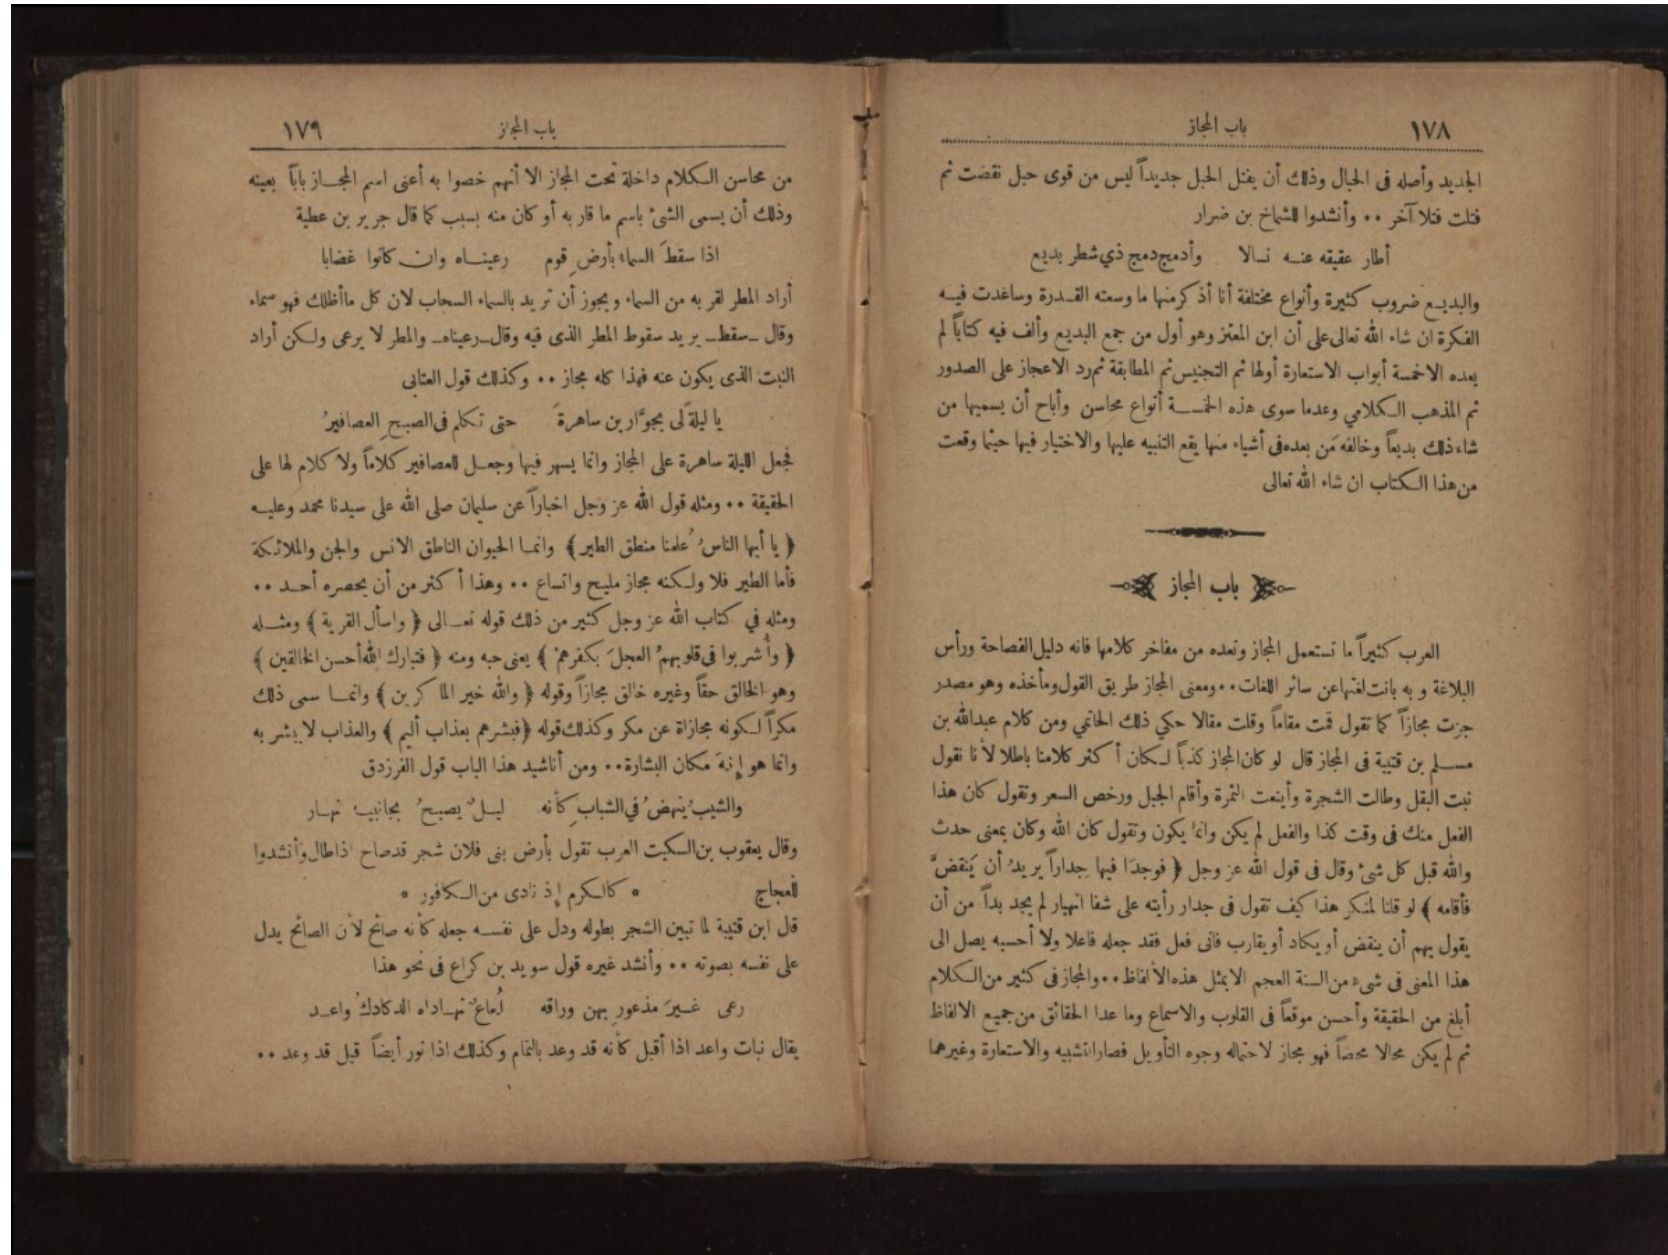 ١٧٨ باب المجاز
الجديد وأصله فى الحبال وذلك أن يفتل الحبل جديداً ليس من قوى حبل نقضت ثم
فتلت فتلا آخر ٠٠ وأنشدوا للشماخ بن ضرار
أطار عقيقه عنـه نسالا وأدمج دمج ذي شطر بديع
والبديـع ضروب كثيرة وأنواع مختلفة أنا أذكر منها ما وسعته القـدرة وساعدت فيـه
الفكرة ان شاء الله تعالى على أن ابن المعتز وهو أول من جمع البديع وألف فيه كتاباً لم
يعده الا خمسة أبواب الاستعارة أولها ثم التجنيس ثم المطابقة ثم رد الاعجاز على الصدور
ثم المذهب الـكلامي وعد ما سوى هذه الخمسـة أنواع محاسن وأباح أن يسميها من
شاء ذلك بديعاً وخالفه مَن بعده فى أشياء منها يقع التنبيه عليها والاختيار فيها حيثما وقعت
من هذا الـكتاب ان شاء الله تعالى
باب المجاز
العرب كثيراً ما تستعمل المجاز وتعده من مفاخر كلامها فانه دليل الفصاحة ورأس
البلاغة وبه بانت لغتها عن سائر اللغات ٠٠ ومعنى المجاز طريق القول ومأخذه وهو مصدر
جزت مجازاً كما تقول قمت مقاماً وقلت مقالا حكي ذلك الحاتمي ومن كلام عبدالله بن
مسـلم بن قتيبة فى المجاز قال لو كان المجاز كذباً لـكان أكثر كلامنا باطلا لأنا نقول
نبت البقل وطالت الشجرة وأينعت الثمرة وأقام الجبل ورخص السعر وتقول كان هذا
الفعل منك فى وقت كذا والفعل لم يكن وانما يكون وتقول كان الله وكان بمعنى حدث
والله قبل كل شئ وقال فى قول الله عز وجل ﴿ فوجدَا فيها جداراً يريدُ أن يَنقضَّ
فأقامه ﴾ لو قلنا لمنكر هذا كيف تقول فى جدار رأيته على شفا انهيار لم يجد بداً من أن
يقول يهم أن ينقض أو يكاد أو يقارب فانى فعل فقد جعله فاعلا ولا أحسبه يصل الى
هذا المعنى فى شىء من السنة العجم الا بمثل هذه الألفاظ ٠٠ والمجاز فى كثير من الـكلام
أبلغ من الحقيقة وأحسن موقعاً فى القلوب والاسماع وما عدا الحقائق من جميع الالفاظ
ثم لم يكن محالا محضاً فهو مجاز لاحتماله وجوه التأويل فصار التشبيه والاستعارة وغيرهما
باب المجاز ١٧٩
من محاسن الـكلام داخلة تحت المجاز الا أنهم خصوا به أعنى اسم المجـاز باباً بعينه
وذلك أن يسمى الشئ باسم ما قاربه أو كان منه بسبب كما قال جرير بن عطية
اذا سقطَ السماء بأرضِ قوم رعينـاه وان كانوا غضابا
أراد المطر لقربه من السماء ويجوز أن تريد بالسماء السحاب لان كل ما أظلك فهو سماء
وقال ـ سقط ـ يريد سقوط المطر الذى فيه وقال ـ رعيناه ـ والمطر لا يرعى ولـكن أراد
النبت الذى يكون عنه فهذا كله مجاز ٠٠ وكذلك قول العتابى
يا ليلةً لى بجوَّارين ساهرةً حتى تـكلم فى الصبـحِ العصافيرُ
فجعل الليلة ساهرة على المجاز وانما يسهر فيها وجعـل للعصافير كلاماً ولا كلام لها على
الحقيقة ٠٠ ومثله قول الله عز وجل اخباراً عن سليمان صلى الله على سيدنا محمد وعليـه
﴿ يا أيها الناسُ عُلمنا منطق الطير ﴾ وانمـا الحيوان الناطق الانس والجن والملائـكة
فأما الطير فلا ولـكنه مجاز مليـح واتساع ٠٠ وهذا أكثر من أن يحصره أحـد ٠٠
ومثله في كتاب الله عز وجل كثير من ذلك قوله تعـالى ﴿ واسأل القرية ﴾ ومثـله
﴿ وأُشربوا فى قلوبهمُ العجلَ بكفرهمْ ﴾ يعنى حبه ومنه ﴿ فتبارك الله أحسن الخالقين ﴾
وهو الخالق حقاً وغيره خالق مجازاً وقوله ﴿ والله خير الماكرين ﴾ وانمـا سمى ذلك
مكراً لـكونه مجازاة عن مكر وكذلك قوله ﴿ فبشرهم بعذاب أليم ﴾ والعذاب لا يبشر به
وانما هو إنهَ مكان البشارة ٠٠ ومن أناشيد هذا الباب قول الفرزدق
والشيبُ ينهضُ في الشبابِ كأنه ليـلٌ يصيـحُ بجانبيـه نهـار
وقال يعقوب بن السكيت العرب تقول بأرض بنى فلان شجر قد صاح اذا طال وأنشدوا
للعجاج * كالـكرم إذ نادى من الـكافور *
قال ابن قتيبة لما تبين الشجر بطوله ودل على نفسـه جعله كأنه صائح لأن الصائح يدل
على نفسه بصوته ٠٠ وأنشد غيره قول سويد بن كراع فى نحو هذا
رعى غـيرَ مذعورٍ بهن وراقه لُعاعٌ تهـاداه الدكادكُ واعـد
يقال نبات واعد اذا أقبل كأنه قد وعد بالتمام وكذلك اذا نور أيضاً قيل قد وعد ٠٠